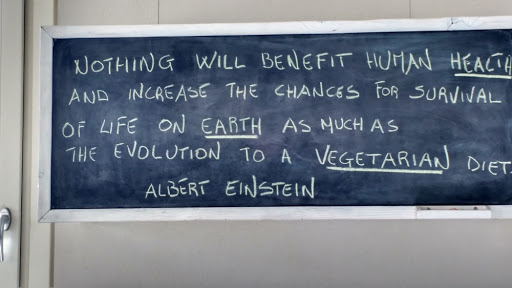 NOTHING WILL BENEFIT HUMAN HEALTH
AND INCREASE THE CHANCES FOR SURVIVAL
OF LIFE ON EARTH AS MUCH AS
THE EVOLUTION TO A VEGETARIAN DIET.
ALBERT EINSTEIN